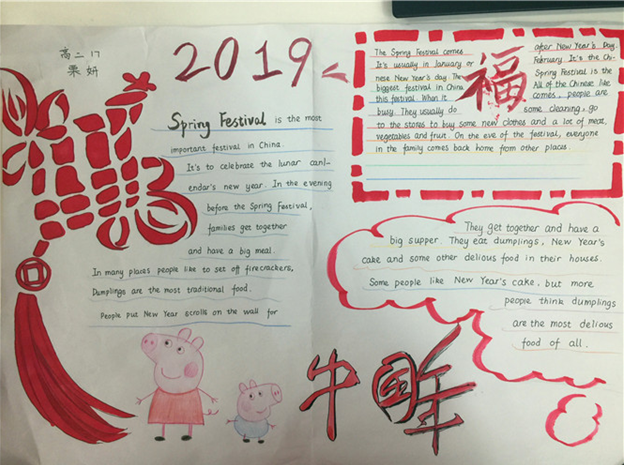 高二 17
栗妍
2019
Spring Festival is the most
important festival in China.
It's to celebrate the lunar canl-
endar's new year. In the evening
before the Spring Festival,
families get together
and have a big meal.
In many places people like to set off firecrackers.
Dumplings are the most traditional food.
People put New Year scrolls on the wall for
福
The Spring Festival comes after New Year's Day.
It's usually in January or February. It's the Chi-
nese New Year's day. The Spring Festival is the
biggest festival in China All of the Chinese like
this festival. When it comes, people are
busy. They usually do some cleaning, go
to the stores to buy some new clothes and a lot of meat,
vegetables and fruit. On the eve of the festival, everyone
in the family comes back home from other places.
They get together and have a
big supper. They eat dumplings, New Year's
cake and some other delious food in their houses.
Some people like New Year's cake, but more
people think dumplings
are the most delious
food of all.
中国年